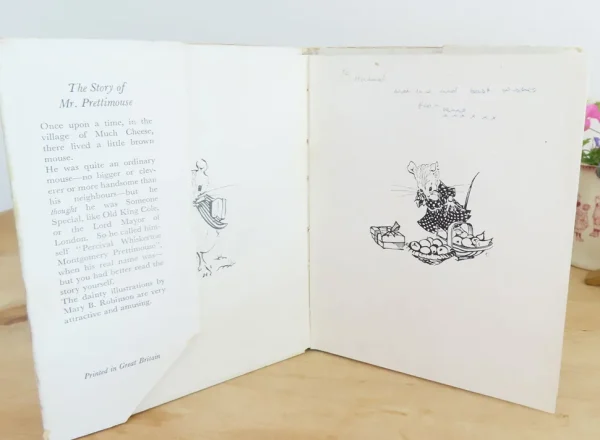 The Story of
Mr. Prettimouse
Once upon a time, in the
village of Much Cheese,
there lived a little brown
mouse.
He was quite an ordinary
mouse—no bigger or clev-
erer or more handsome than
his neighbours—but he
thought he was Someone
Special, like Old King Cole,
or the Lord Mayor of
London. So he called him-
self "Percival Whiskerton
Montgomery Prettimouse",
when his real name was—
but you had better read the
story yourself.
The dainty illustrations by
Mary B. Robinson are very
attractive and amusing.
Printed in Great Britain
To
best wishes
from
x x x x x x